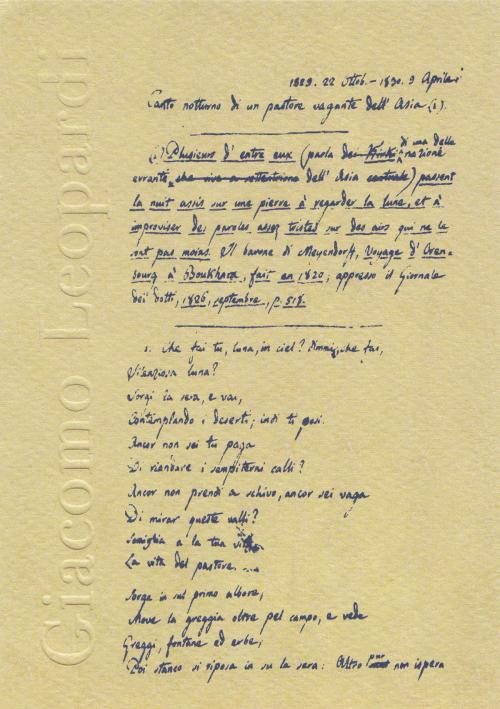 Giacomo Leopardi
1829. 22 Ottob. – 1830. 9 Aprile.
Canto notturno di un pastore vagante dell'Asia (1).
(1) Plusieurs d'entre eux (parla dei Kirkisi di una delle nazione
errante, che vive a settentrione dell'Asia centrale) passent
la nuit assis sur une pierre à regarder la lune, et à
improviser des paroles assez tristes sur des airs qui ne le
sont pas moins. Il barone di Meyendorff, Voyage d'Oren-
bourg à Boukhara, fait en 1820; appresso il Giornale
dei dotti, 1826, septembre, p. 518.
1. Che fai tu, luna, in ciel? dimmi, che fai,
Silenziosa luna?
Sorgi la sera, e vai,
Contemplando i deserti; indi ti posi.
Ancor non sei tu paga
Di riandare i sempiterni calli?
Ancor non prendi a schivo, ancor sei vaga
Di mirar queste valli?
Somiglia a la tua vita
La vita del pastore.
Sorge in sul primo albore,
Move la greggia oltre pel campo, e vede
Greggi, fontane ed erbe;
Poi stanco si riposa in su la sera: Altro non ispera